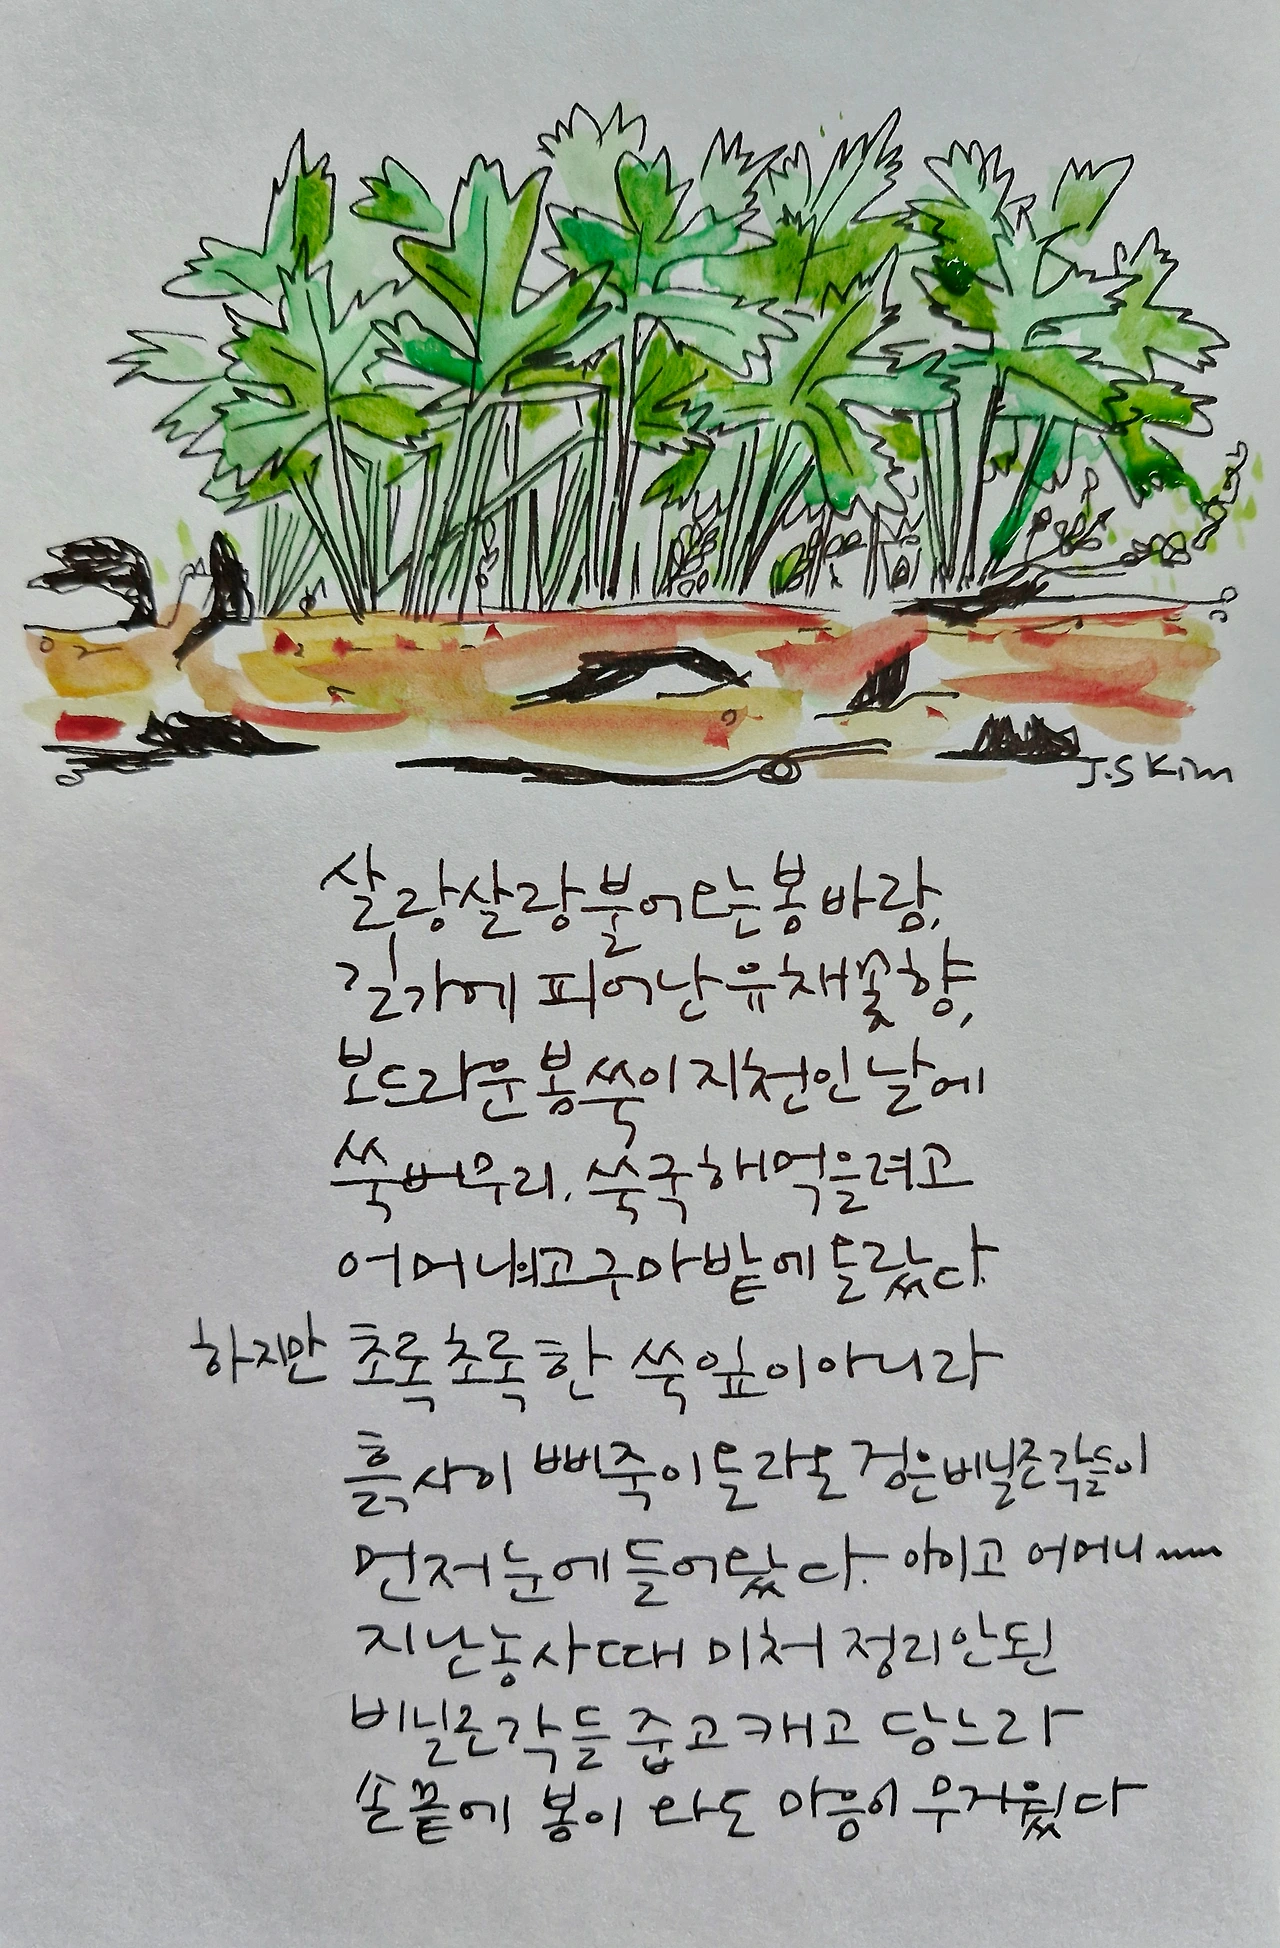 J.S Kim
살랑살랑 불어오는 봄바람,
길가에 피어난 유채꽃향,
보드라운 봄쑥이 지천인 날에
쑥버무리, 쑥국 해먹을려고
어머니의 고구마밭에 들렀다.
하지만 초록초록한 쑥잎이 아니라
흙사이 삐죽이 올라온 검은비닐조각들이
먼저 눈에 들어왔다. 아이고 어머니~~~
지난 농사때 미처 정리안된
비닐조각들 줍고 캐고 당느라
손끝에 봄이 와도 마음이 무거웠다